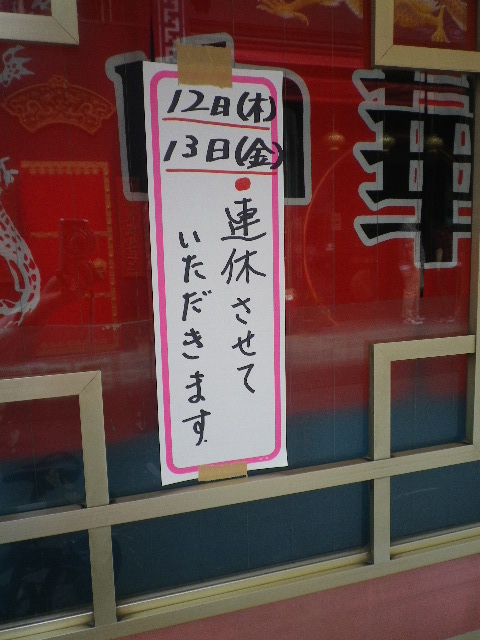 12日(木)
13日(金)
連休させて
いただきます.